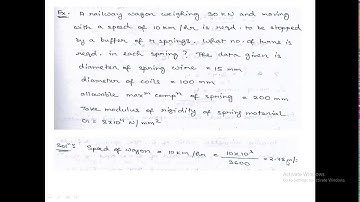 Ex- A railway wagon weighing 30 KN and moving
with a speed of 10 km/hr is reqd. to be stopped
by a buffer of 4 springs. What no. of turns is
reqd. in each spring? The data given is
diameter of spring wire = 15 mm
diameter of coils = 100 mm
allowable maxᵐ compⁿ of spring = 200 mm
Take modulus of rigidity of spring material
G = 8x10⁴ N/mm²
Solⁿ: Speed of wagon = 10 km/hr = 10x10³/3600 = 2.78 m/s
Activate Windows